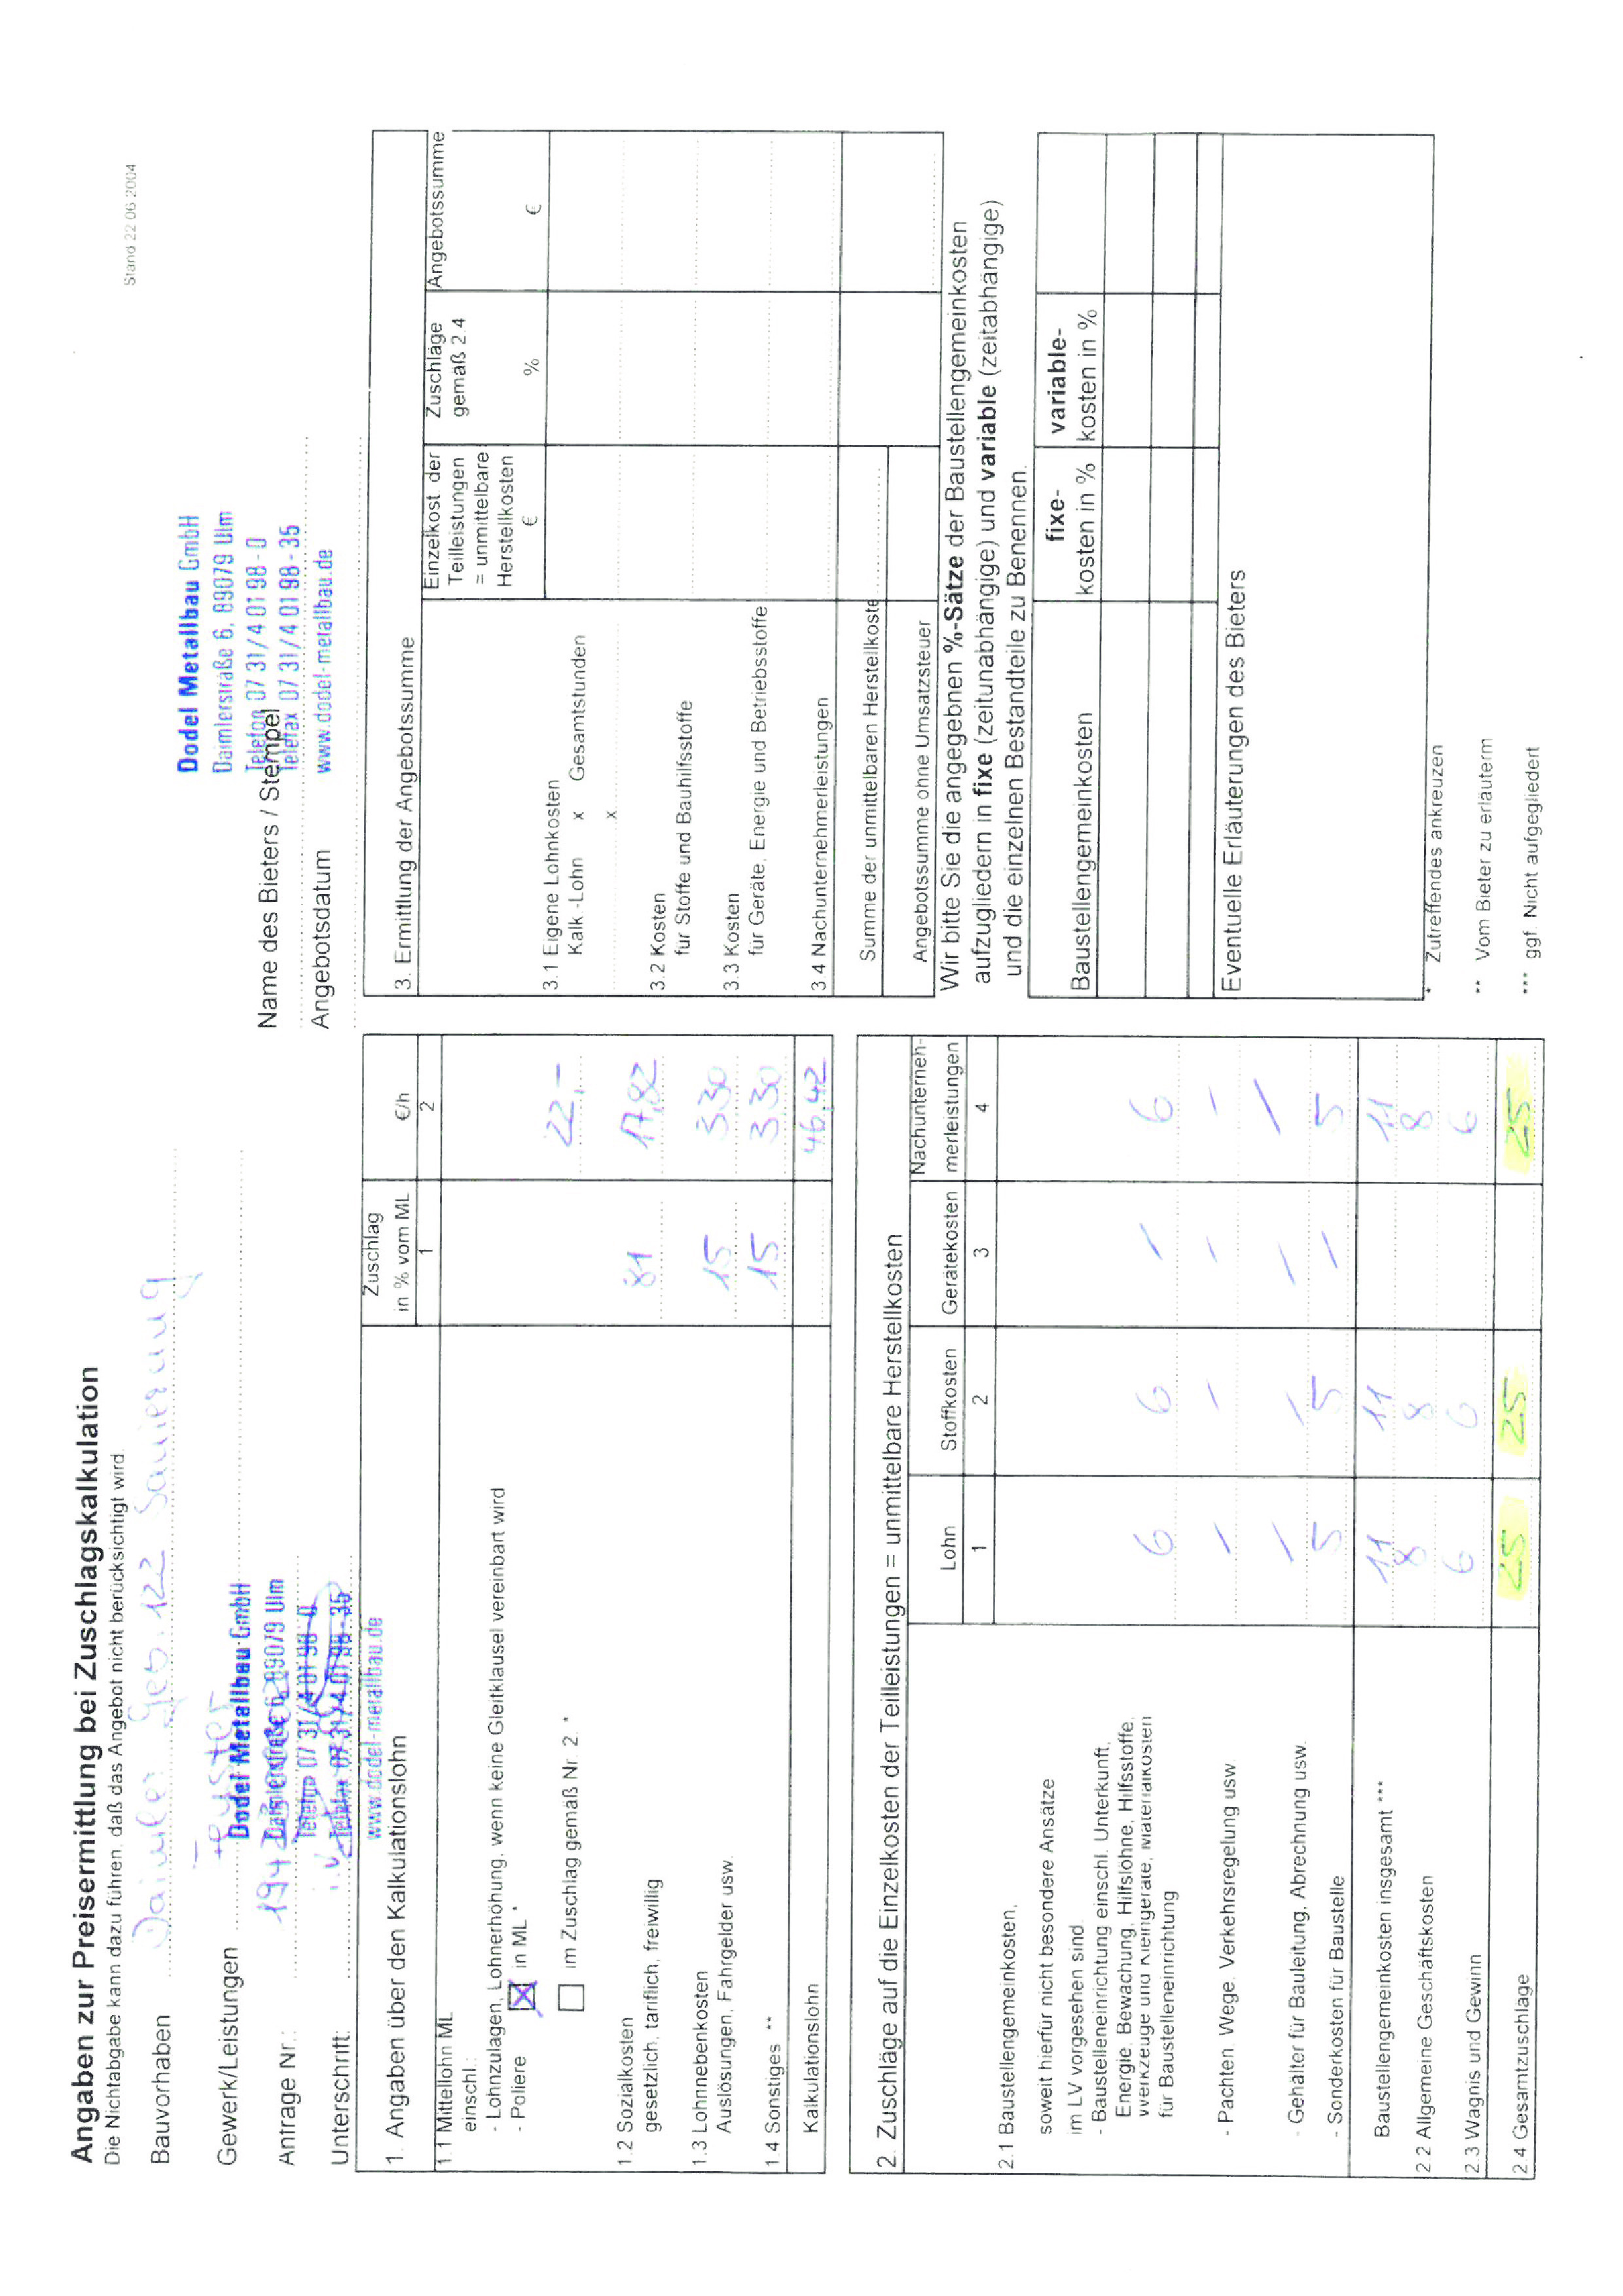 Stand 22 06 2004
Angaben zur Preisermittlung bei Zuschlagskalkulation
Die Nichtabgabe kann dazu führen, daß das Angebot nicht berücksichtigt wird
Bauvorhaben Daimler Geb. 122 Sanierung
Gewerk/Leistungen Fenster
Antrage Nr.:
Unterschrift:
Dodel Metallbau GmbH
Daimlerstraße 6, 89079 Ulm
Telefon 07 31 / 4 01 98 - 0
Telefax 07 31 / 4 01 98 - 35
www.dodel-metallbau.de
Dodel Metallbau GmbH
Daimlerstraße 6, 89079 Ulm
Telefon 07 31 / 4 01 98 - 0
Name des Bieters / Stempel
Telefax 07 31 / 4 01 98 - 35
Angebotsdatum
www.dodel-metallbau.de
1. Angaben über den Kalkulationslohn
Zuschlag in % vom ML
€/h
1 2
1.1 Mittellohn ML
einschl.:
- Lohnzulagen, Lohnerhöhung, wenn keine Gleitklausel vereinbart wird
- Poliere ☒ in ML *
22,-
☐ im Zuschlag gemäß Nr. 2. *
1.2 Sozialkosten
gesetzlich, tariflich, freiwillig 81 17,82
1.3 Lohnnebenkosten
Auslösungen, Fahrgelder usw. 15 3.30
1.4 Sonstiges ** 15 3.30
Kalkulationslohn 46,42
2. Zuschläge auf die Einzelkosten der Teilleistungen = unmittelbare Herstellkosten
Lohn Stoffkosten Gerätekosten Nachunterneh-
merleistungen
1 2 3 4
2.1 Baustellengemeinkosten,
soweit hierfür nicht besondere Ansätze
im LV vorgesehen sind
- Baustelleneinrichtung einschl. Unterkunft,
Energie, Bewachung, Hilfslöhne, Hilfsstoffe,
Werkzeuge und Kleingeräte, Materialkosten
für Baustelleneinrichtung 6 6 / 6
- Pachten, Wege, Verkehrsregelung usw / / / /
- Gehälter für Bauleitung, Abrechnung usw. / / / /
- Sonderkosten für Baustelle 5 5 / 5
Baustellengemeinkosten insgesamt *** 11 11 11
2.2 Allgemeine Geschäftskosten 8 8 8
2.3 Wagnis und Gewinn 6 6 6
2.4 Gesamtzuschläge 25 25 25
3. Ermittlung der Angebotssumme
Einzelkost. der
Teilleistungen
= unmittelbare
Herstellkosten
€
Zuschläge
gemäß 2.4
%
Angebotssumme
€
3.1 Eigene Lohnkosten
Kalk.-Lohn x Gesamtstunden
x
3.2 Kosten
für Stoffe und Bauhilfsstoffe
3.3 Kosten
für Geräte, Energie und Betriebsstoffe
3.4 Nachunternehmerleistungen
Summe der unmittelbaren Herstellkoste
Angebotssumme ohne Umsatzsteuer
Wir bitte Sie die angegebnen %-Sätze der Baustellengemeinkosten
aufzugliedern in fixe (zeitunabhängige) und variable (zeitabhängige)
und die einzelnen Bestandteile zu Benennen.
Baustellengemeinkosten
fixe-
kosten in %
variable-
kosten in %
Eventuelle Erläuterungen des Bieters
* Zutreffendes ankreuzen
** Vom Bieter zu erläutern
*** ggf. Nicht aufgegliedert